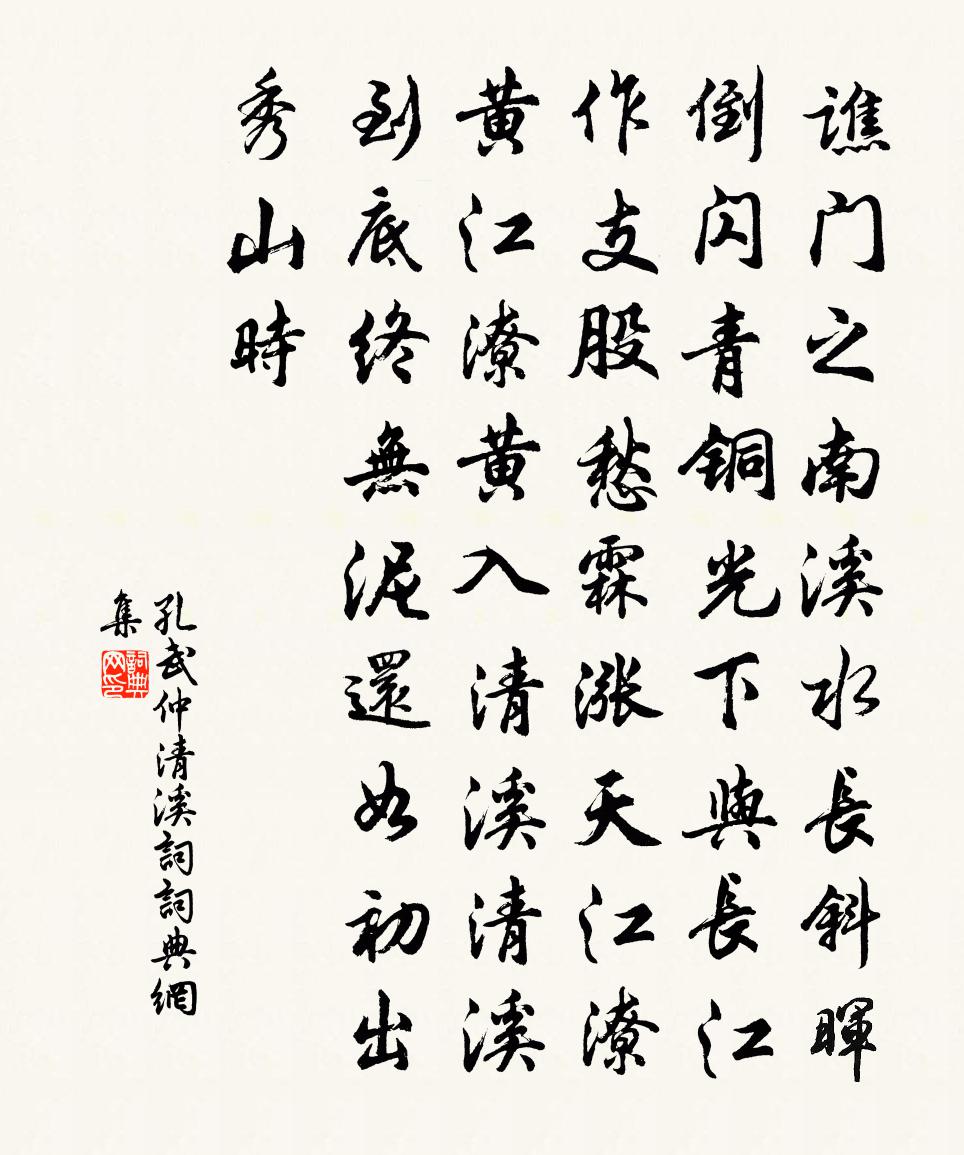 譙门之南溪水長斜暉
倒闪青铜光下與長江
作支股愁霖漲天江潦
黄江潦黄入清溪清溪
到底终無泥還如初出
秀山時
孔武仲清溪詞詞典網
集
詞典
网印